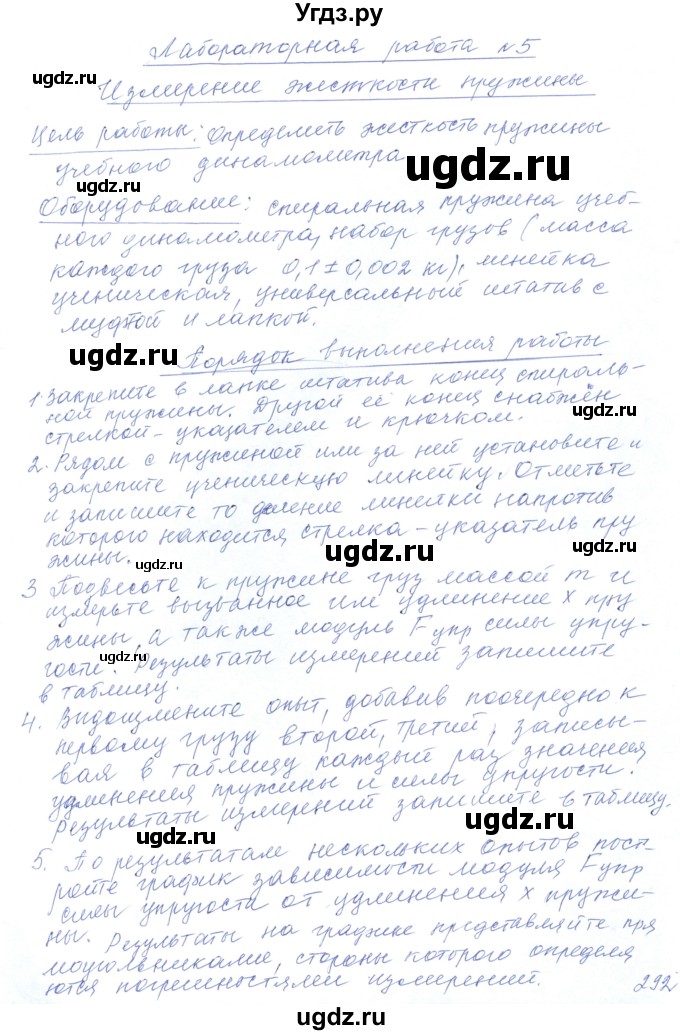 Угдз.ру
Лабораторная работа №5
Измерение жесткости пружины
Цель работы: Определить жесткость пружины
учебного динамометра
Оборудование: спиральная пружина учеб-
ного динамометра, набор грузов (масса
каждого груза 0,1 ± 0,002 кг), линейка
ученическая, универсальный штатив с
муфтой и лапкой.
Порядок выполнения работы
1. Закрепите в лапке штатива конец спираль-
ной пружины. Другой её конец снабжён
стрелкой-указателем и крючком.
2. Рядом с пружиной или за ней установите и
закрепите ученическую линейку. Отметьте
и запишите то деление линейки напротив
которого находится стрелка-указатель пру
жины.
3 Подвесьте к пружине груз массой m и
измерьте вызванное им удлинение x пру
жины, а также модуль Fупр силы упру-
гости. Результаты измерений запишите
в таблицу.
4. Видоизмените опыт, добавив поочередно к
первому грузу второй, третий, записы-
вая в таблицу каждый раз значения
удлинения пружины и силы упругости.
Результаты измерений запишите в таблицу.
5. По результатам нескольких опытов пост-
ройте график зависимости модуля Fупр
силы упругости от удлинения x пружи-
ны. Результаты на графике представляйте пря
моугольниками, стороны которого определя
ются погрешностями измерений.
292
ugdz.ru
ugdz.ru
ugdz.ru
ugdz.ru
ugdz.ru
ugdz.ru
ugdz.ru
ugdz.ru
ugdz.ru
ugdz.ru
ugdz.ru
ugdz.ru
ugdz.ru
ugdz.ru